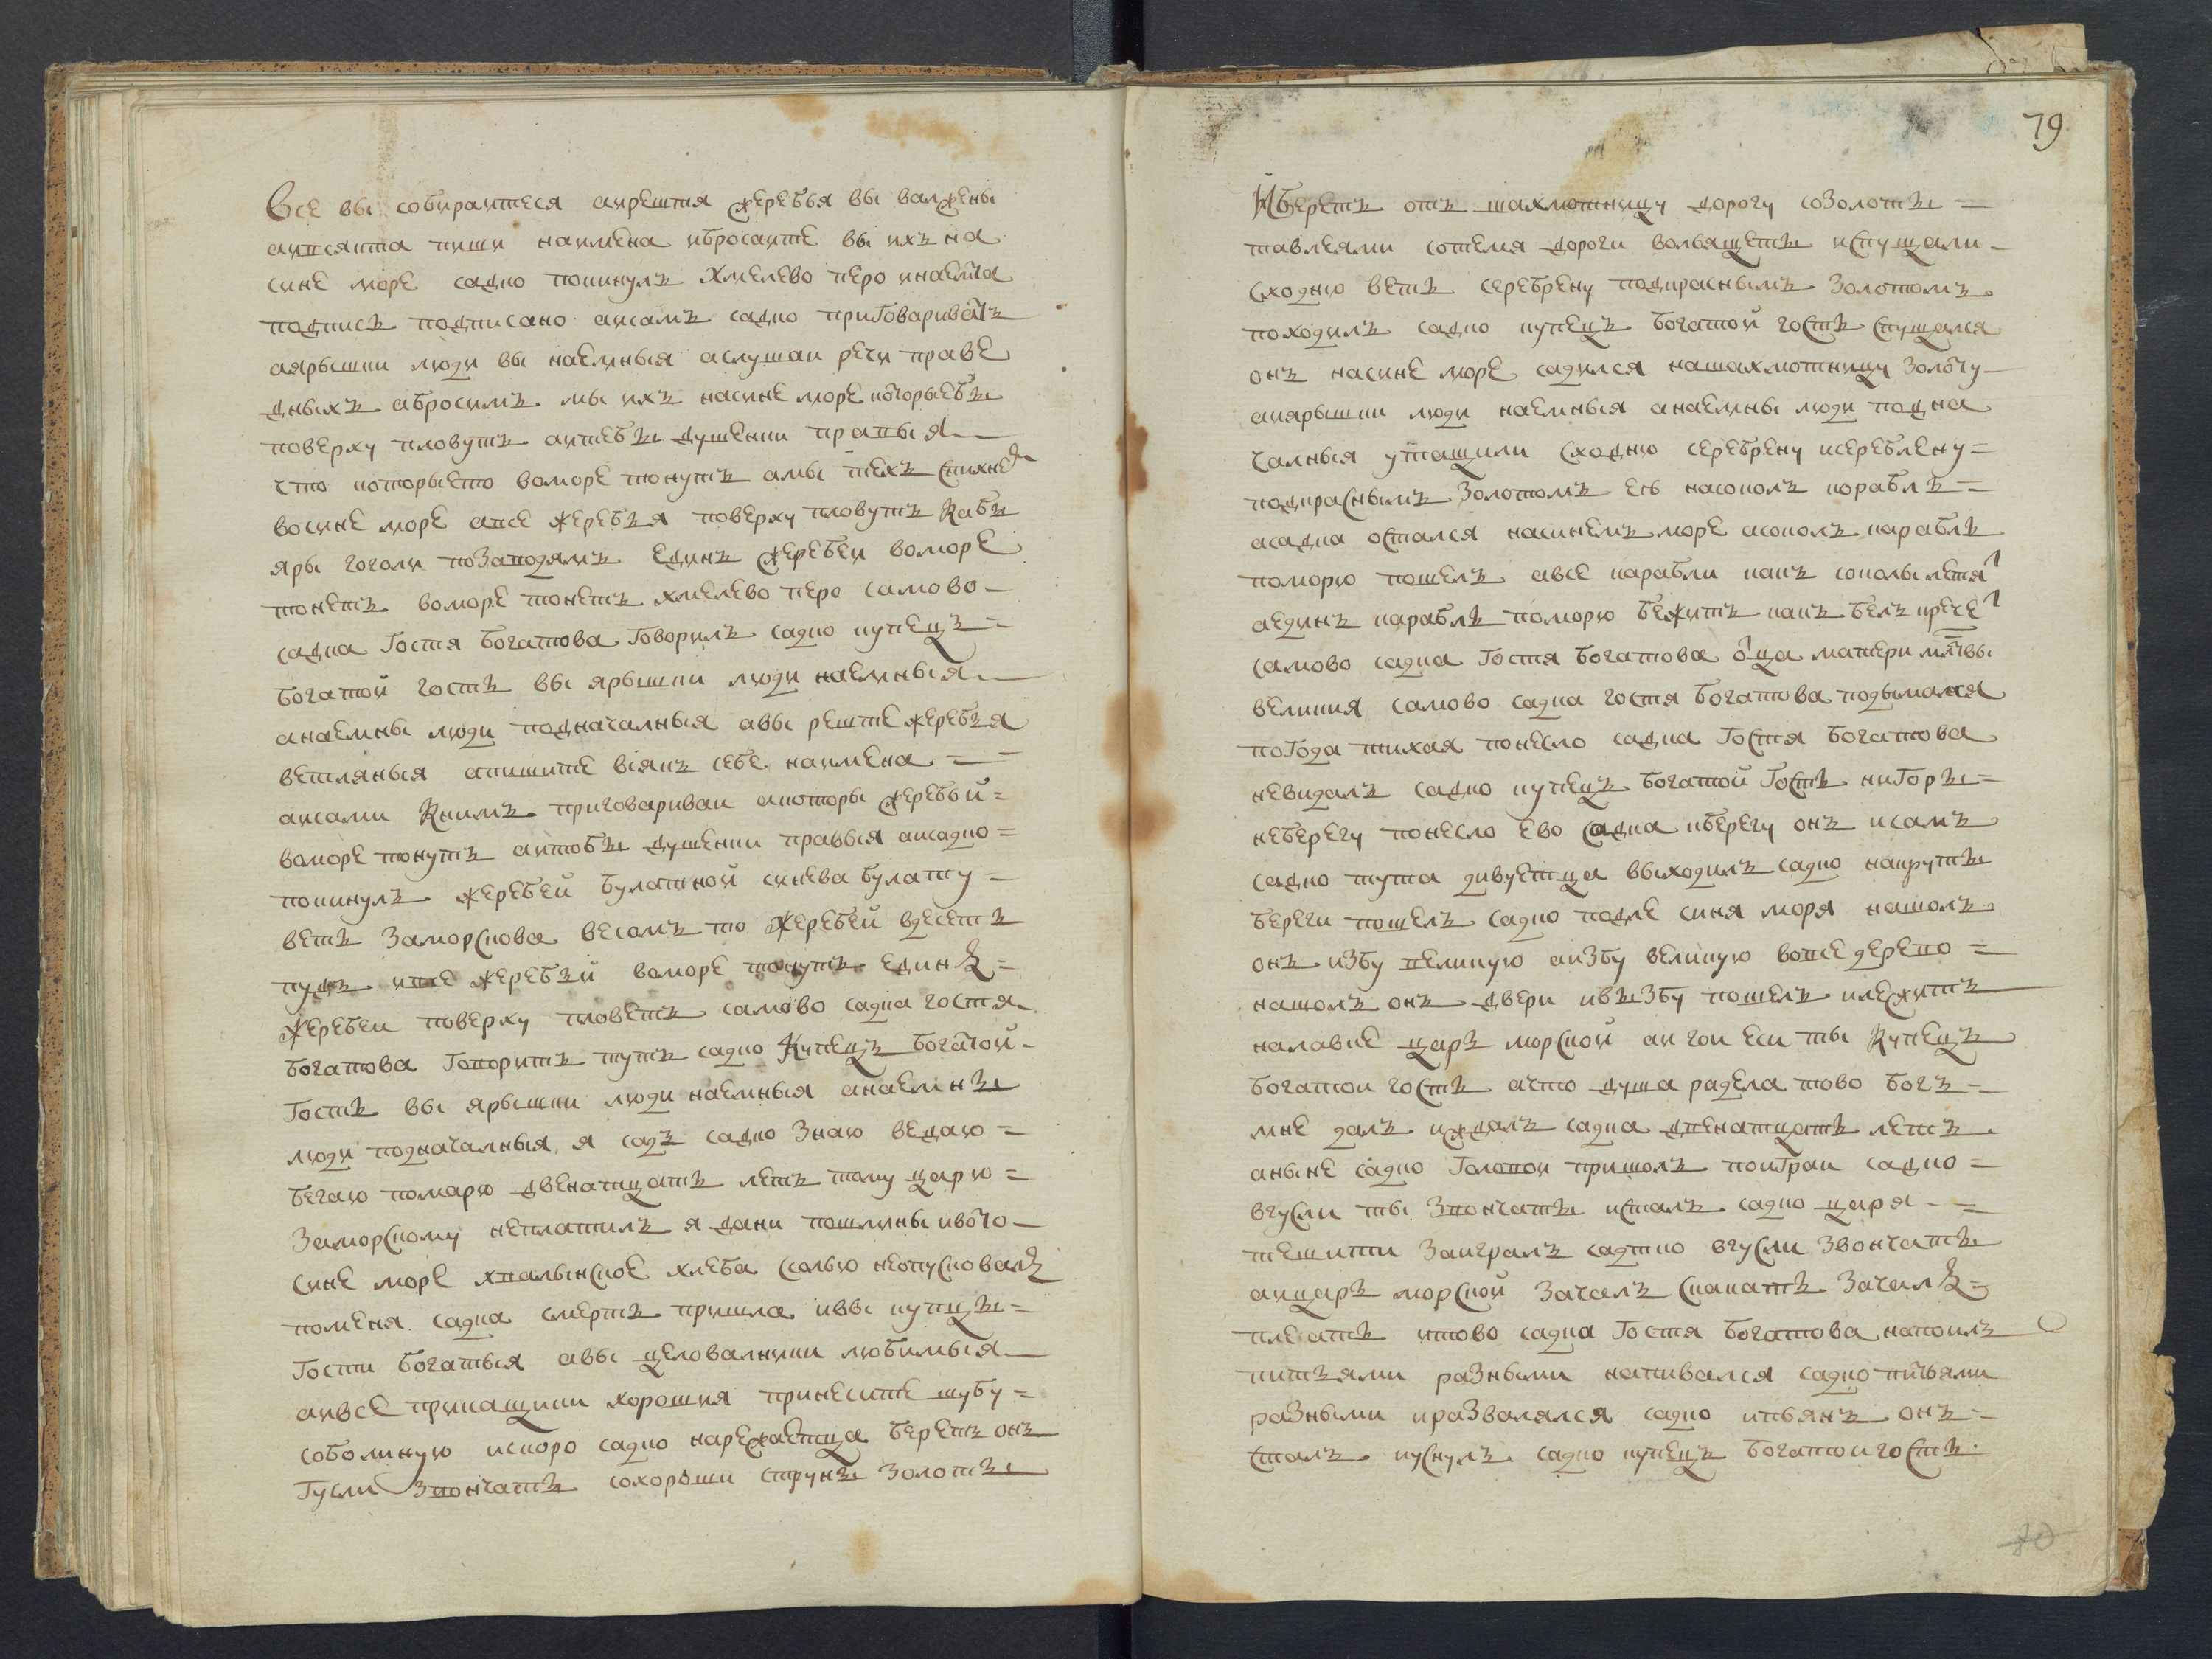 Все вы собираитеся аирештя жеребья вы валжены
аипсяита пиши наимена ибросаите вы ихъ на
сине море садко покинулъ хмелево перо инаемта
подпись подписано аисамъ садко приговаривать
аярышки люди вы наемныя аслушаи речи праве
дныхъ абросимъ мы ихъ насине море которыебы
поверху пловутъ аитебы душенки правыя
что которыето воморе тонутъ амы техъ спихнем
восине море авсе жеребья поверху пловутъ кабы
яры гоголи позаводямъ единъ жеребеи воморе
тонетъ воморе тонетъ хмелево перо самово
садка гостя богатова говорилъ садко купецъ
богатой гость вы ярышки люди наемныя
анаемны люди подначалныя авы реште жеребья
ветляныя апишите всякъ себе наимена
аисами книмъ приговариваи акоторы жеребьй
воморе тонутъ аитобы душенки правыя аисадко
покинулъ жеребей булатной синева булату
веть заморскова весомъ то жеребей вдесеть
пудъ ивсе жеребьй воморе тонутъ единъ
жеребеи поверху пловетъ самово садка гостя
богатова говоритъ тутъ садко купецъ богатой
гость вы ярышки люди наемныя анаемны
люди подначалныя, я садъ садко знаю ведаю
бегаю поморю двенатцать летъ тому царю
заморскому неплатилъ я дани пошлины ивото
сине море хвалынское хлеба ссолью неопусковалъ
поменя садка смерть пришла ивы купцы
гости богатыя авы целовалники любимыя
аивсе прикащики хорошия принесите шубу
соболиную искоро садко нарежаетца беретъ онъ
гусли звончаты сохороши струны золоты
79
Иберетъ отъ шахмотницу дорогу созолоты
тавлеями сотемя дороги вольящеты испущали
сходню веть серебрену подкраснымъ золотомъ
походилъ садко купецъ богатой гость спущался
онъ насине море садился нашахмотницу золоту
аиярышки люди наемныя анаемны люди подна
чалныя утащили сходню серебрену исеребряну
подкраснымъ золотомъ ея насоколъ корабль
асадка остался насинемъ море асоколъ карабль
поморю пошелъ авсе карабли какъ соколы летят
аединъ карабль поморю бежитъ какъ белъ кречет
самово садка гостя богатова отца матери млтвы
великия самово садка гостя богатова подымался
погода тихая понесло садка гостя богатова
невидалъ садко купецъ богатой гость нигоры
неберегу понесло ево садка иберегу онъ исамъ
садко тута дивуетца выходилъ садко накруты
береги пошелъ садко подле синя моря нашолъ
онъ избу великую аизбу великую вовсе дерево
нашолъ онъ двери ивызбу пошелъ илежитъ
налавке царь морской аи гои еси ты купецъ
богатои гость ачто душа радела тово богъ
мне далъ иждалъ садка двенатцать летъ
аныне садко головои пришолъ поиграи садко
вгусли ты звончаты исталъ садко царя
тешити заигралъ садтко вгусли звончаты
аицарь морской зачалъ скакать зачалъ
плесать итово садка гостя богатова напоилъ
питьями разными напивался садко питьями
разными иразвалялся садко ипьянъ онъ
сталъ иуснулъ садко купецъ богатои гость
80